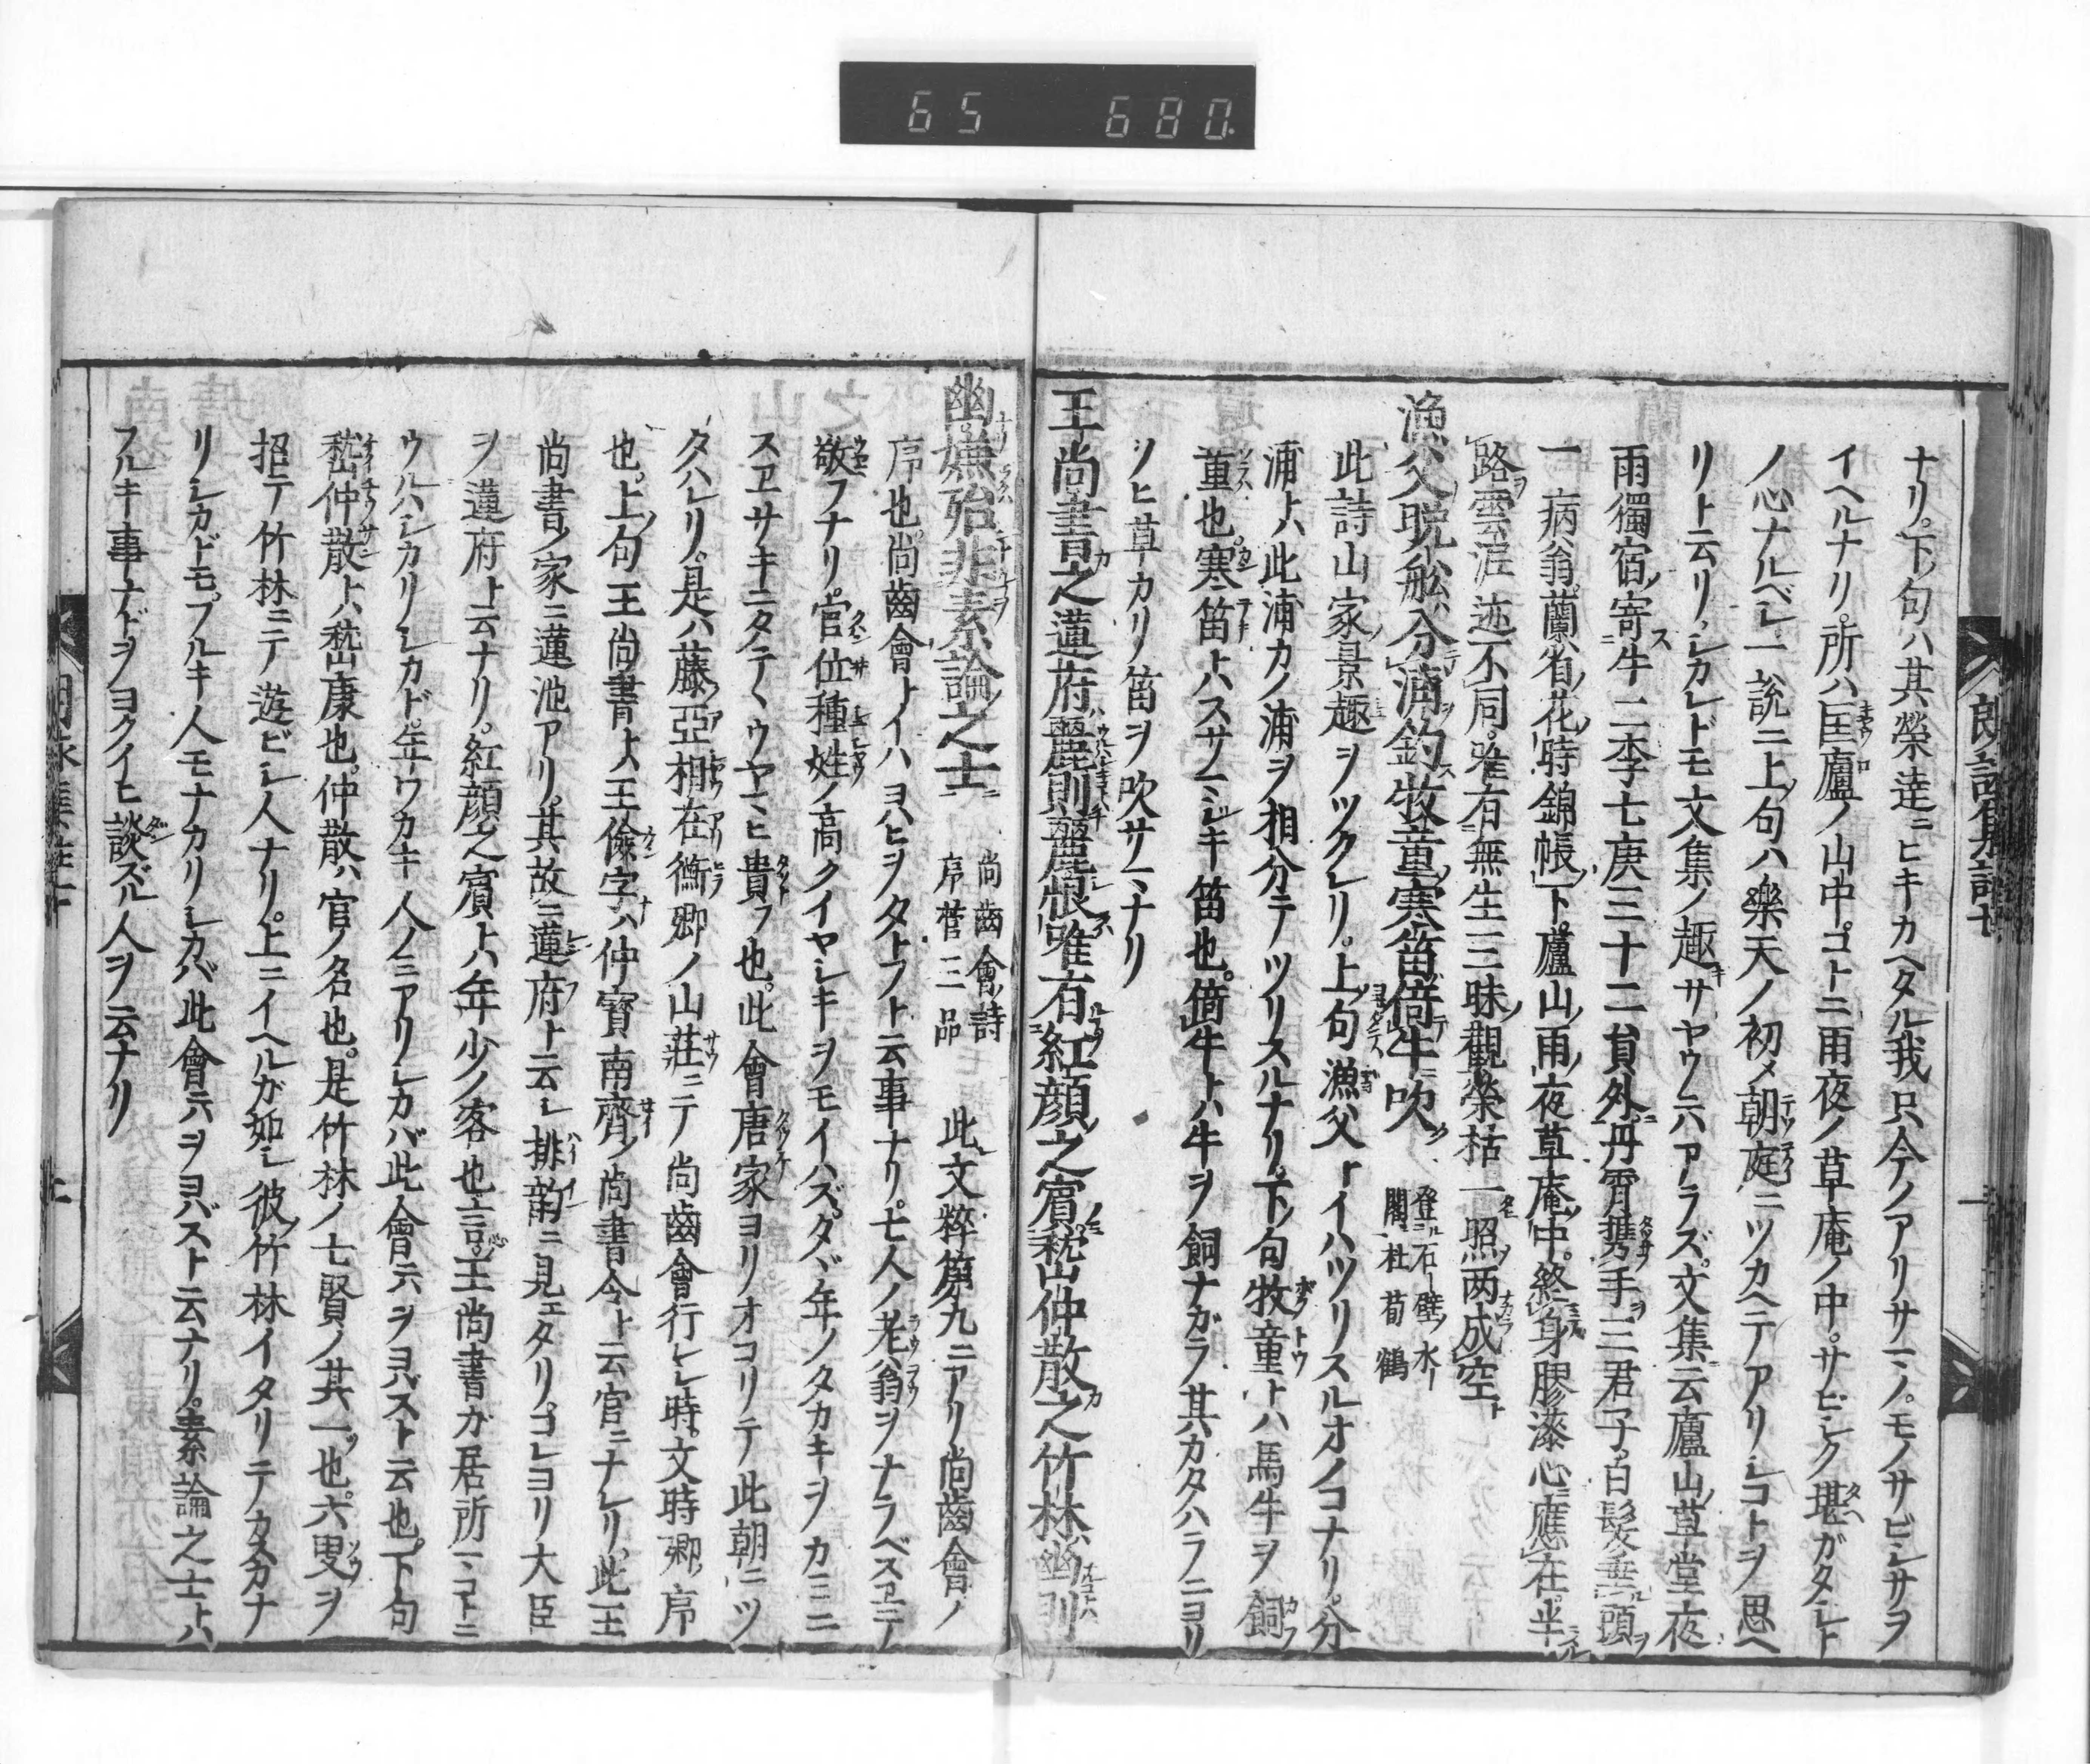 65 680.
ナリ。下ノ句ハ其榮達ニヒキカヘタル我只今ノアリサマノ。モノサビシサヲ
イヘルナリ。所ハ匡廬ノ山中。コトニ雨夜ノ草庵ノ中。サビシク堪ガタシト
ノ心ナルベシ一説ニ上ノ句ハ樂天ノ初メ朝庭ニツカヘテアリシコトヲ思ヘ
リト云リ。シカレドモ文集ノ趣キサヤウニハアラズ。文集云廬山ノ草堂夜
雨獨宿ノ寄ス牛二李七庾三十二員外ニ丹霄携手ヲ三君子。白髮垂ル頭ヲ
一病翁。蘭省ノ花ノ時錦帳ノ下。廬山ノ雨ノ夜草庵ノ中。終身膠漆心應在。半
路雲泥迹不同。唯有無生三昧觀榮枯一照两成空ト
漁父晩舩分浦釣牧童寒笛倚牛吹 登石壁水閣 杜荀鶴
此詩山家ノ景趣ヲツクレリ。上ノ句漁父トイハツリスルオノコナリ。分
浦トハ此浦カノ浦ヲ相分テツリスルナリ。下ノ句牧童トハ馬牛ヲ飼フ
童也。寒笛トハスサマジキ笛也。倚牛トハ牛ヲ飼ナガラ其カタハラニヨリ
ソヒ草カリノ笛ヲ吹サマナリ
王尚書之蓮府麗則麗恨唯有紅顔之賓嵆仲散之竹林幽則
幽嫌殆非素論之士 尚齒會詩序 菅三品 此文粹第九ニアリ尚齒會ノ
序也。尚齒會トイハヨハヒヲタトフト云事ナリ。七人ノ老翁ヲナラベスヱテ
敬フナリ。官位種姓ノ高クイヤシキヲモイハズ。タヾ年ノタカキヲカミニ
スヱサキニタテヽウヤマヒ貴フ也。此會唐家ヨリオコリテ此朝ニツ
タハレリ。是ハ藤亞相在衡卿ノ山莊ニテ尚齒會行レシ時。文時卿ノ序
也。上ノ句王尚書ト王儉字ハ仲寳南齊ノ尚書令ト云官ニナレリ。此王
尚書ノ家ニ蓮池アリ。其故ニ蓮府ト云シ排韵ニ見エタリ。コレヨリ大臣
ヲ蓮府ト云ナリ。紅顔之賓トハ年少ノ客也言心ハ王尚書ガ居所マコトニ
ウルハシカリシカド。年ワカキ人ノミアリシカバ此會ニハヲヨバズト云也。下ノ句
嵆仲散トハ嵆康也。仲散ハ官ノ名也。是竹林ノ七賢ノ其一ツ也。六叟ヲ
招テ竹林ニテ遊ビシ人ナリ。上ニイヘルガ如シ彼ノ竹林イタリテカスカナ
リシカドモ。フルキ人モナカリシカバ此會ニハヲヨバズト云ナリ。素論之士トハ
フルキ事ナドヲヨクイヒ談ズル人ヲ云ナリ